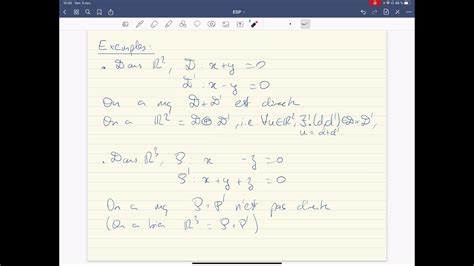 ESP
Exemples:
• Dans ℝ², D : x + y = 0
D' : x - y = 0
On a mq D + D' est directe
On a ℝ² = D ⊕ D', i.e ∀u ∈ ℝ², ∃! (d,d') ∈ D×D',
u = d + d'
• Dans ℝ³, P : x - z = 0
P' : x + y + z = 0
On a mq P + P' n'est pas directe
(On a bien ℝ³ = P + P')